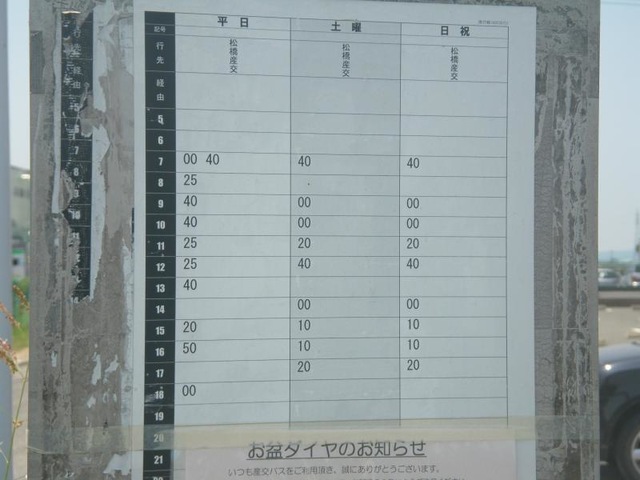 平日 土曜 日祝
記号
行先 松橋産交 松橋産交 松橋産交
経由
5
6
7 00 40 40 40
8 25
9 40 00 00
10 40 00 00
11 25 20 20
12 25 40 40
13 40
14 00 00
15 20 10 10
16 50 10 10
17 20 20
18 00
19
20
21
お盆ダイヤのお知らせ
いつも産交バスをご利用頂き、誠にありがとうございます。